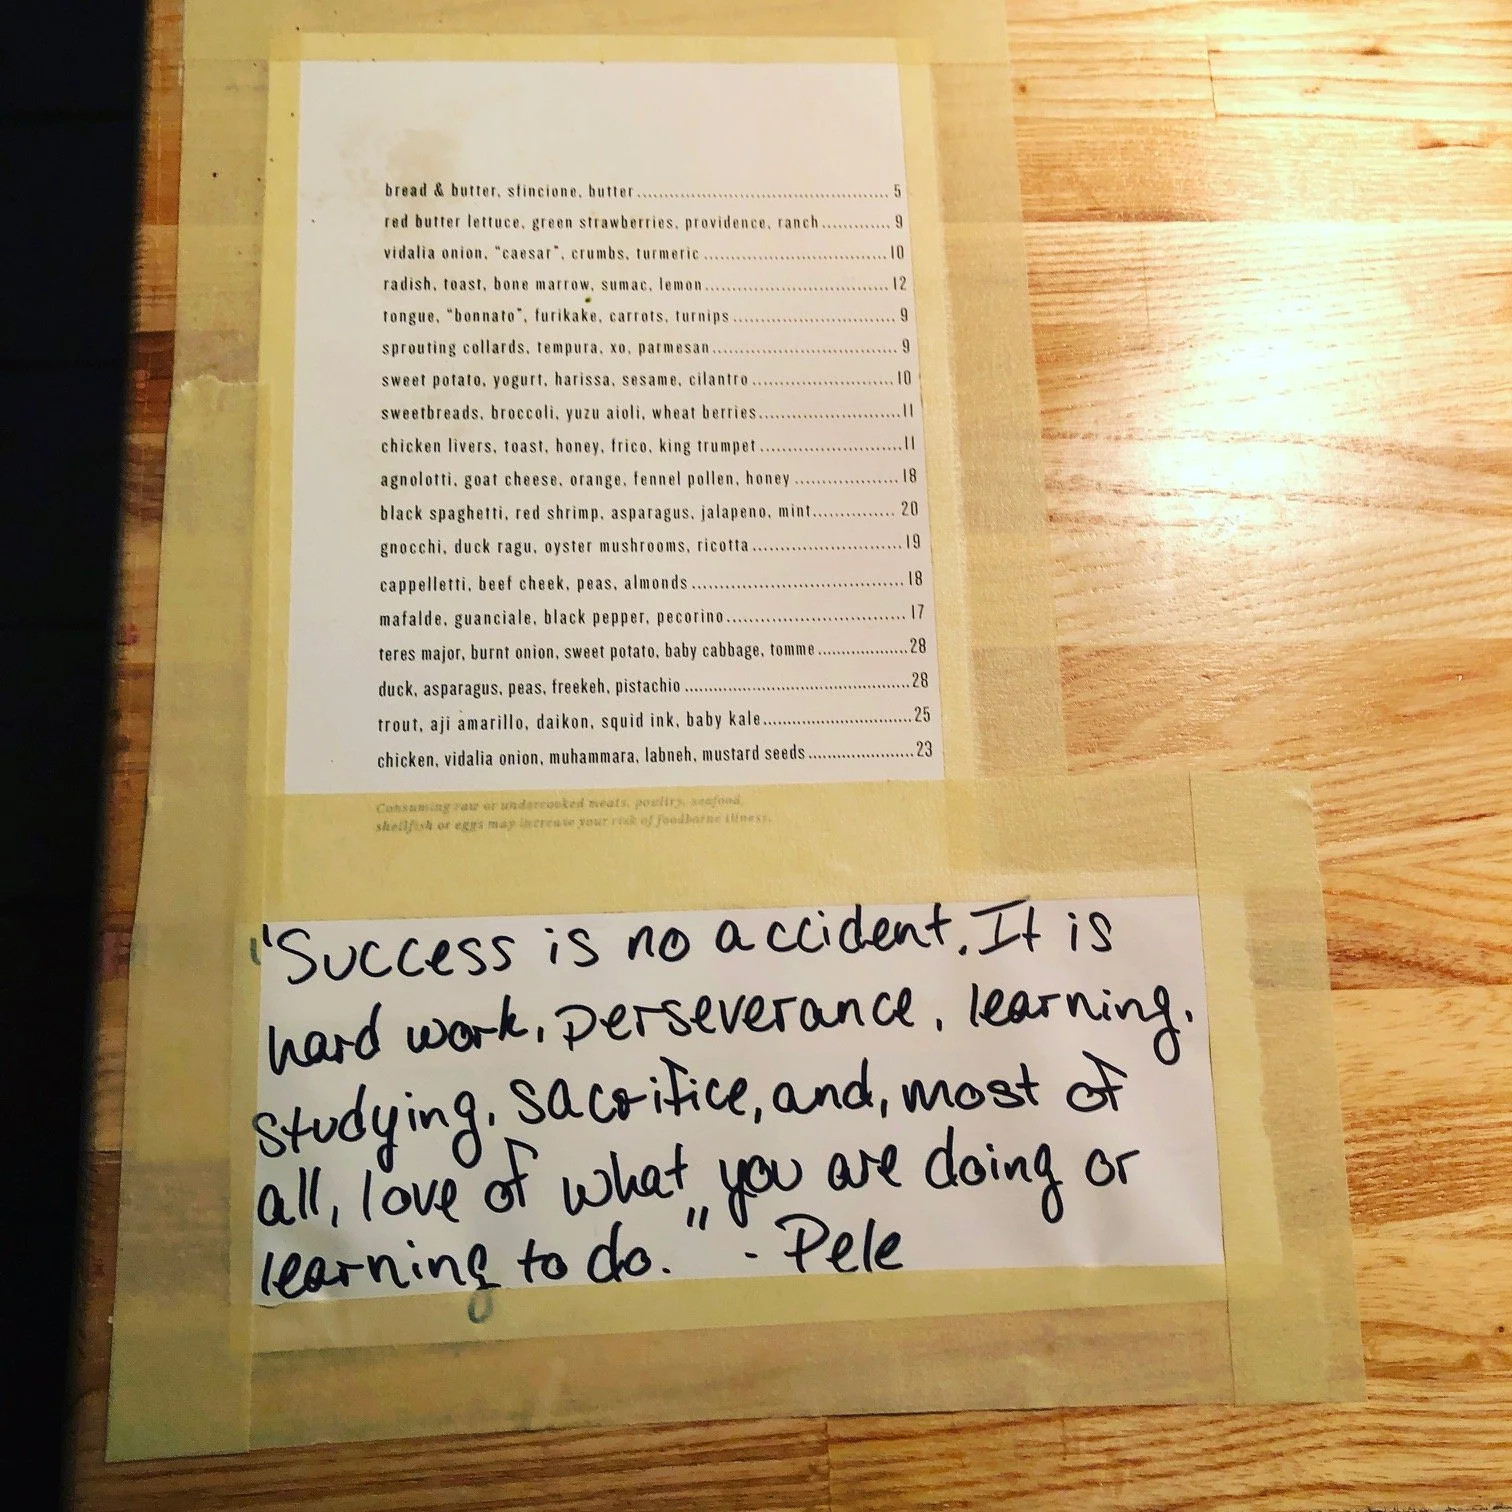 bread & butter, sfincione, butter........................................... 5
red butter lettuce, green strawberries, providence, ranch............. 9
vidalia onion, "caesar", crumbs, turmeric ................................10
radish, toast, bone marrow, sumac, lemon................................12
tongue, "bonnato", furikake, carrots, turnips ............................. 9
sprouting collards, tempura, xo, parmesan................................ 9
sweet potato, yogurt, harissa, sesame, cilantro .........................10
sweetbreads, broccoli, yuzu aioli, wheat berries.........................11
chicken livers, toast, honey, frico, king trumpet.........................11
agnolotti, goat cheese, orange, fennel pollen, honey ..................18
black spaghetti, red shrimp, asparagus, jalapeno, mint............... 20
gnocchi, duck ragu, oyster mushrooms, ricotta ..........................19
cappelletti, beef cheek, peas, almonds ....................................18
mafalde, guanciale, black pepper, pecorino...............................17
teres major, burnt onion, sweet potato, baby cabbage, tomme ...............28
duck, asparagus, peas, freekeh, pistachio ......................................28
trout, aji amarillo, daikon, squid ink, baby kale.........................25
chicken, vidalia onion, muhammara, labneh, mustard seeds..................23
Consuming raw or undercooked meats, poultry, seafood,
shellfish or eggs may increase your risk of foodborne illness.
"Success is no accident. It is
hard work, perseverance, learning,
studying, sacrifice, and, most of
all, love of what you are doing or
learning to do." - Pele